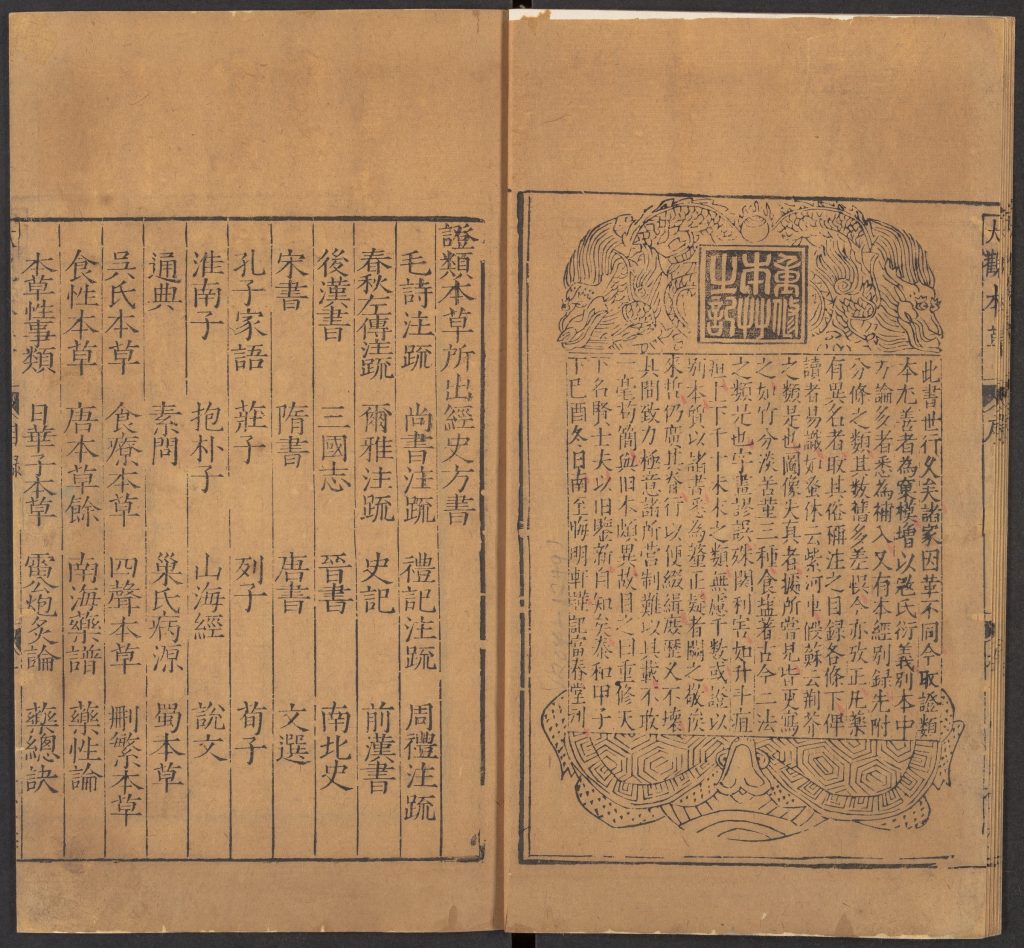 大觀本草
重修本草之記
此書世行久矣諸家因革不同今取證類
本尤善者為窠模增以寇氏衍義別本中
方論多者悉為補入又有本經別録先附
分條之類其数舊多差悞今亦攷正凡藥
有異名者取其俗稱注之目録各條下俾
讀者易識如蚤休云紫河車假蘇云荆芥
之類是也圖像失真者據所嘗見皆更寫
之如竹分淡苦䈽三種食塩著古今二法
之類是也字畫謬誤殊関利害如升斗疽
疸上下千十未末之類無慮千数或證以
別本質以諸書悉為釐正疑者闕之敬俟
來哲仍廣其脊行以便綴緝庻歷久不壊
其間致力極意諸所営制難以具載不敢
一毫苟簡與旧本頗異故目之曰重修天
下名賢士夫以旧鑒新自知矣泰和甲子
下己酉冬日南至晦明軒謹記富春堂刊
證類本草所出經史方書
毛詩注䟽 尚書注䟽 禮記注䟽 周禮注䟽
春秋左傳注䟽 爾雅注䟽 史記 前漢書
後漢書 三國志 晉書 南北史
宋書 隋書 唐書 文選
孔子家語 莊子 列子 荀子
淮南子 抱朴子 山海經 說文
通典 素問 巢氏病源 蜀本草
吳氏本草 食療本草 四聲本草 刪繁本草
食性本草 唐本草餘 南海藥譜 藥性論
本草性事類 日華子本草 雷公炮炙論 藥總訣